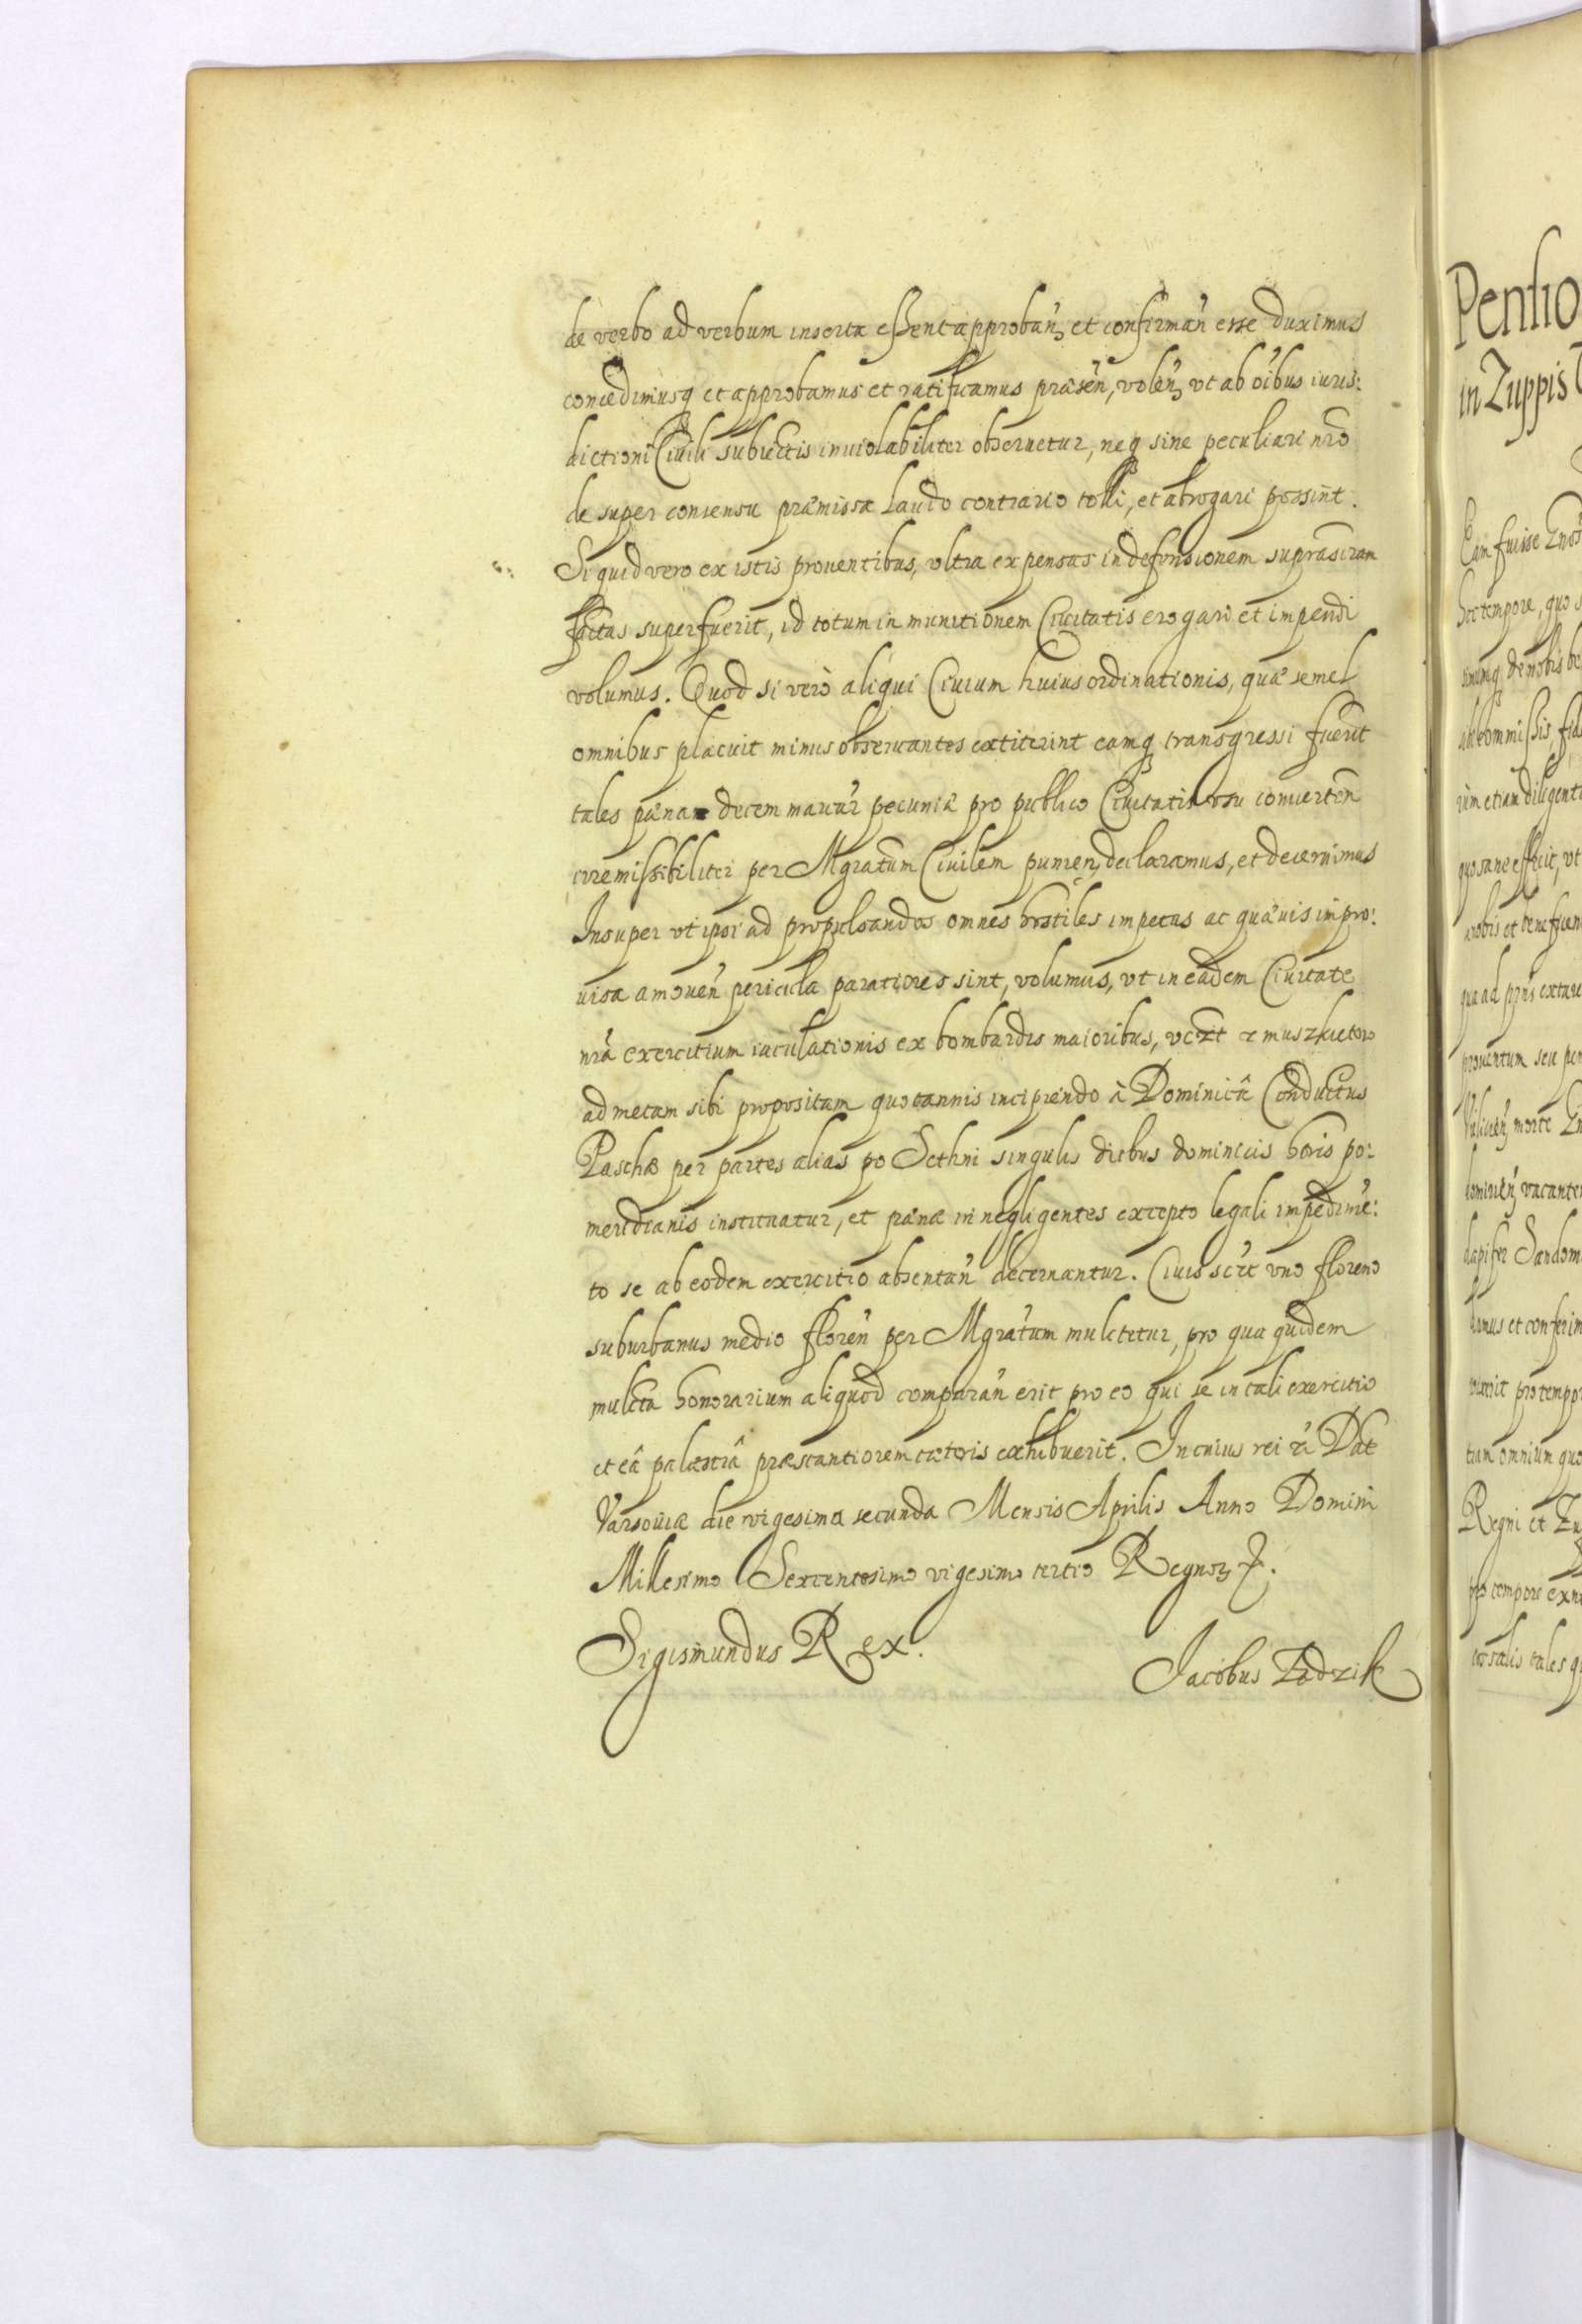 de verbo ad verbum inserta essent approban, et confirman esse duximus
concedimusq et approbamus et ratificamus præsen, volen, vt ab oibus iuris:
dictioni Ciuili subiectis inuiolabiliter obseruetur, neq sine peculiari nro
de super consensu præmissa Laudo contrario tolli, et abrogari possint.
Si quid vero ex istis prouentibus, vltra expensas in defensionem
factas superfuerit, id totum in munitionem Ciuitatis erogari et impendi
volumus. Quod si verò aliqui Ciuium huius ordinationis, quæ semel
omnibus placuit minus obseruantes extiterint eamq transgressi fuerit
tales pæna decem marcar pecuniæ pro publico Ciuitatis vsu conuerten
irremissibiliter per Mgratum Ciuilem punien, declaramus, et decernimus
Insuper vt ipsi ad propulsandos omnes hostiles impetus ac quæuis impro:
uisa amouen pericula paratiores sint, volumus, vt in eadem Ciuitate
nra exercitium iaculationis ex bombardis maioribus, vczt z muszkietow
ad metam sibi propositam quotannis incipiendo à Dominicâ Conductus
Paschæ per partes alias po Sethni singulis diebus dominicis horis po:
meridianis instituatur, et pænæ in negligentes excepto legali impedimē:
to se ab eodem exercitio absentan decernantur. Ciuis sczt vno floreno
suburbanus medio floren per Mgratum mulctetur, pro qua quidem
mulcta honorarium aliquod comparan erit pro eo qui se in tali exercitio
et eâ palæstrâ præstantiorem cæteris exhibuerit. In cuius rei Dat
Varsouiæ die vigesima secunda Mensis Aprilis Anno Domini
Millesimo Sexcentesimo vigesimo tertio Regnor
Sigismundus Rex.
Jacobus Zadzik
Pentio
in Zuppis
Eam fuisse
hoc tempore, quo
de nobis be
rim etiam diligent
quo sane efficit, vt
nobis et benefi
qua ad
prouentum seu pen
morte
vacante
dapifer Sandom
damus et conferim
pro tempo
tiam omnium quo
Regni et Zu
pro tempore
tales q